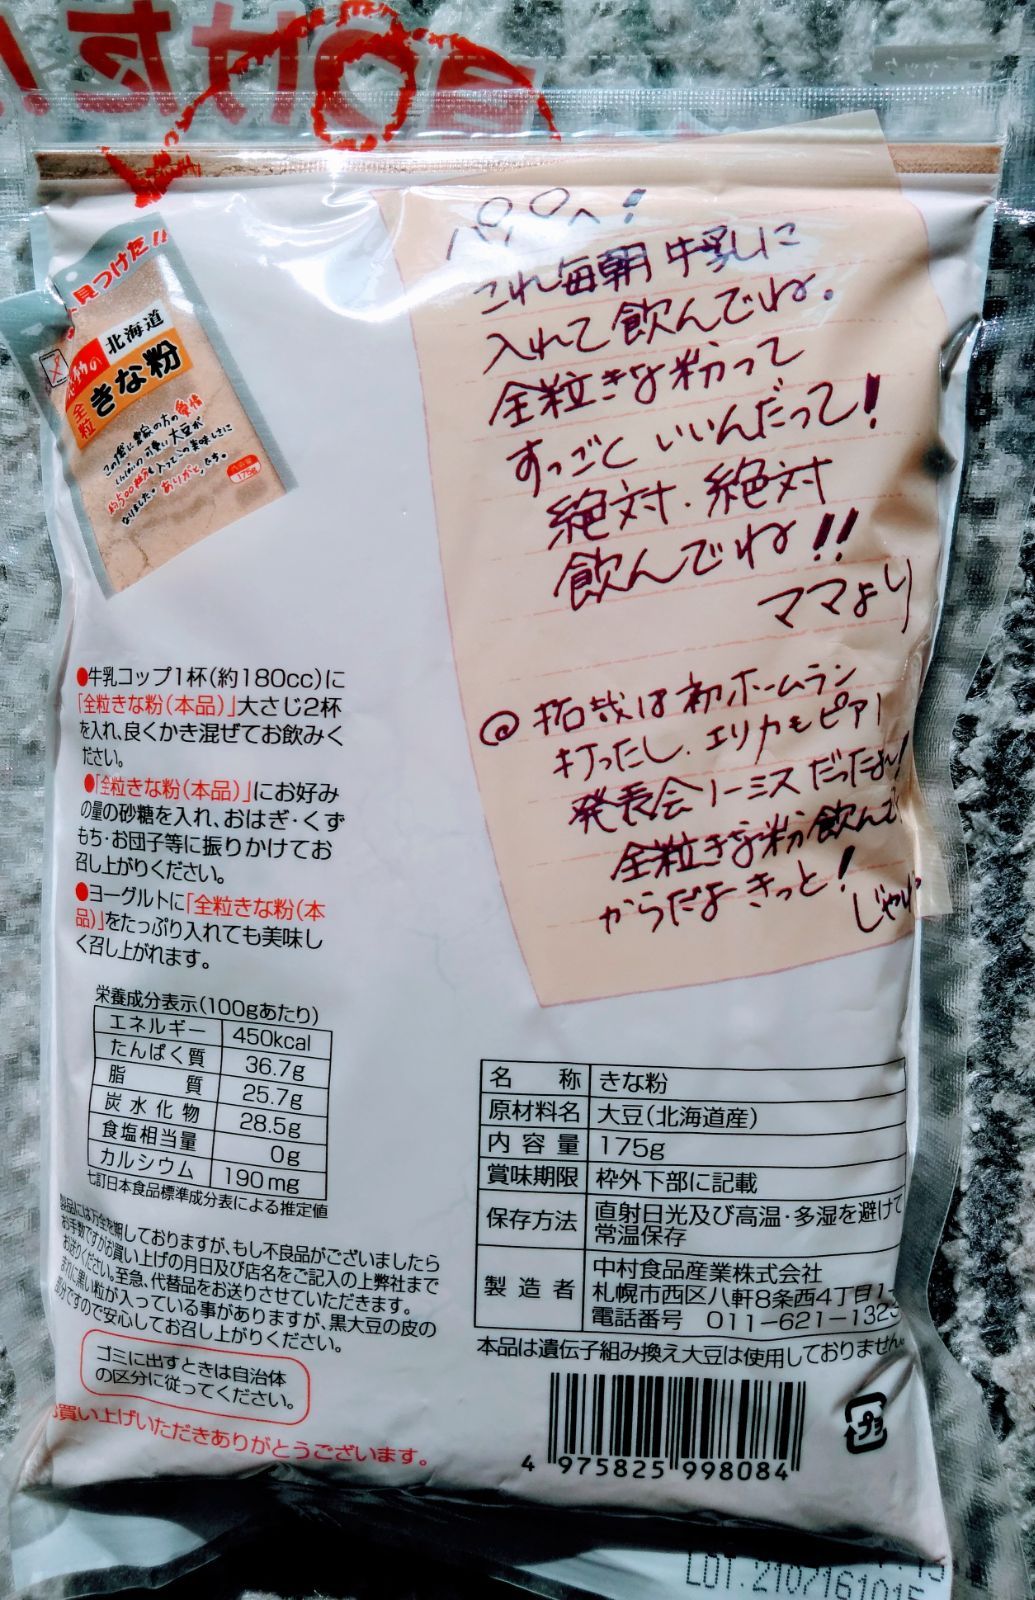 見つけた!!
北海道
感動の
全粒
きな粉
175g
パパへ!
これ毎朝 牛乳に
入れて飲んでね。
全粒きな粉って
すっごくいいんだって!
絶対、絶対
飲んでね!!
ママより
@拓哉は初ホームラン
打ったし、エリカもピアノ
発表会ノーミスだったよ!
全粒きな粉飲んで
からだよきっと!
じゃね
●牛乳コップ1杯(約180cc)に
「全粒きな粉(本品)」大さじ2杯
を入れ、良くかき混ぜてお飲みく
ださい。
●「全粒きな粉(本品)」にお好み
の量の砂糖を入れ、おはぎ・くず
もち・お団子等に振りかけてお
召し上がりください。
●ヨーグルトに「全粒きな粉(本
品)」をたっぷり入れても美味し
く召し上がれます。
栄養成分表示(100gあたり)
エネルギー 450kcal
たんぱく質 36.7g
脂質 25.7g
炭水化物 28.5g
食塩相当量 0g
カルシウム 190mg
七訂日本食品標準成分表による推定値
製品には万全を期しておりますが、もし不良品がございましたら
お手数ですがお買い上げの月日及び店名をご記入の上弊社まで
お送りください。至急、代替品をお送りさせていただきます。
まれに黒い粒が入っている事がありますが、黒大豆の皮の
部分ですので安心してお召し上がりください。
ゴミに出すときは自治体
の区分に従ってください。
お買い上げいただきありがとうございます。
名称 きな粉
原材料名 大豆(北海道産)
内容量 175g
賞味期限 枠外下部に記載
保存方法 直射日光及び高温・多湿を避けて
常温保存
製造者 中村食品産業株式会社
札幌市西区八軒8条西4丁目1-
電話番号 011-621-1323
本品は遺伝子組み換え大豆は使用しておりません。
4 975825 998084
プラ
LOT.2107161015